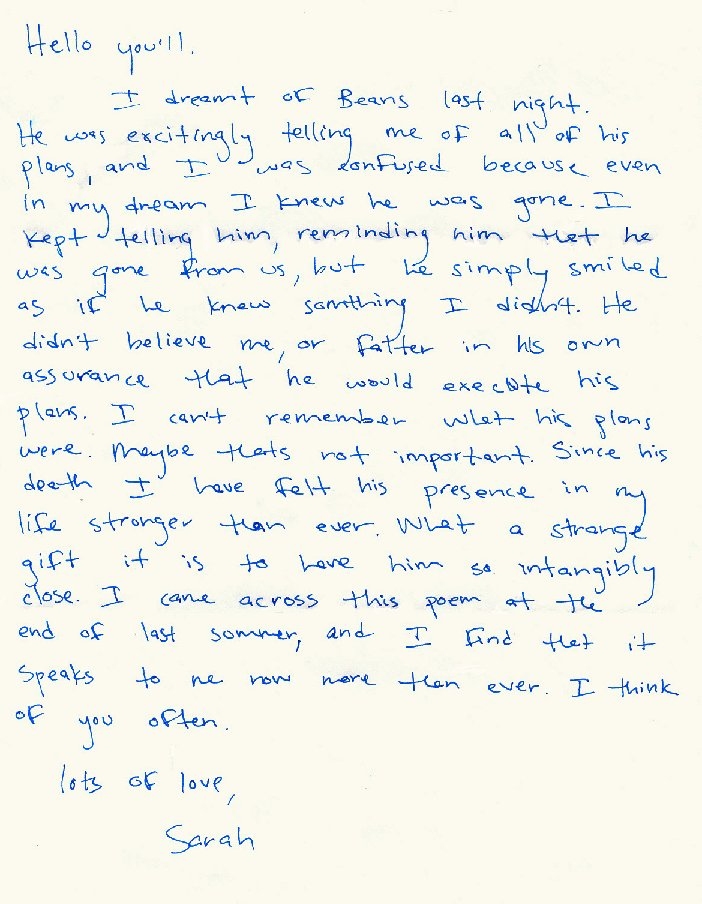 Hello you'll.
I dreamt of Beans last night.
He was excitingly telling me of all of his
plans, and I was confused because even
in my dream I knew he was gone. I
kept telling him, reminding him that he
was gone from us, but he simply smiled
as if he knew something I didn't. He
didn't believe me, or falter in his own
assurance that he would execute his
plans. I can't remember what his plans
were. Maybe thats not important. Since his
death I have felt his presence in my
life stronger than ever. What a strange
gift it is to have him so intangibly
close. I came across this poem at the
end of last sommer, and I find that it
speaks to me now more than ever. I think
of you often.
lots of love,
Sarah